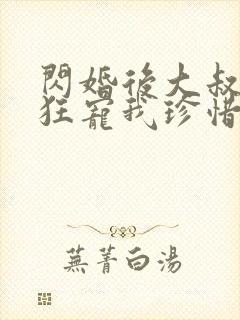 閃婚後大叔
狂寵我珍惜
蕪菁白湯